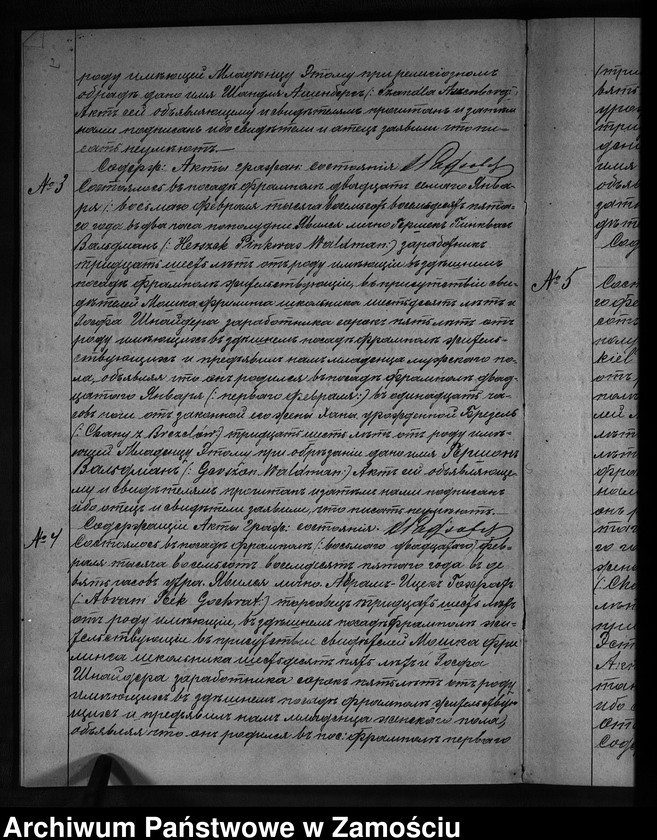 2
роду имѣющей Младенцу Этому при религіозномъ
обрядѣ дано имя Шандля Ашенбергъ (: Szandla Aszenberg:)
Актъ сей объявляющему и свидѣтелямъ прочитанъ и затѣмъ
нами подписанъ ибо свидѣтели и отецъ заявили что пи-
сать неумѣютъ.—
Содерж: Акты граждан: состоянія
№ 3
Состоялось въ посадѣ Фрамполѣ двадцать седьмаго Янва-
ря (: восьмаго Февраля тысяча восемьсотъ восемьдесятъ пята-
го года въ два часа пополудни Явился лично Гершекъ Пинквасъ
Вальдманъ (: Herszek Pinkwas Waldman:) заработникъ
тридцать шесть лѣтъ отъ роду имѣющій въ здѣшнемъ
посадѣ Фрамполѣ жительствующій, въ присутствіи сви-
дѣтелей Мошка Фримина школьника шестьдесятъ лѣтъ и
Іосфа Шнайдера заработника сорокъ пять лѣтъ отъ
роду имѣющихъ въ здѣшнемъ посадѣ Фрамполѣ житель-
ствующихъ и предъявилъ намъ младенца мужскаго по-
ла, объявляя что онъ родился въ посадѣ Фрамполѣ двад-
цатаго Января (: перваго Февраля:) въ одинадцать ча-
совъ ночи отъ законной его жены Хана урожденной
(: Chany z Brezlów:) тридцать шесть лѣтъ отъ роду имѣю-
щей Младенцу Этому при обрѣзаніи дано имя Гершонъ
Вальдманъ (: Gerszon Waldman:) Актъ сей объявляюще-
му и свидѣтелямъ прочитанъ и затѣмъ нами подписанъ
ибо отецъ и свидѣтели заявили, что писать неумѣютъ.—
Содержащій Акты Граж: состоянія.
№ 4
Состоялось въ посадѣ Фрамполѣ (: восьмаго двадцатаго) Фев-
раля тысяча восемьсотъ восемьдесятъ пятаго года въ де-
вять часовъ утра. Явился лично Абрамъ-Ицекъ Гохратъ
(: Abram Icik Gochrat:) торговецъ тридцать шесть лѣтъ
отъ роду имѣющій, въ здѣшнемъ посадѣ Фрамполѣ жи-
тельствующій въ присутствіи свидѣтелей Мошка Фри
минса школьника шестьдесятъ пять лѣтъ и Іосфа
Шнайдера заработника сорокъ пять лѣтъ отъ роду
имѣющихъ въ здѣшнемъ посадѣ Фрамполѣ жительствую-
щихъ и предъявилъ намъ младенца женскаго пола,
объявляя что онъ родился въ пос: Фрамполѣ перваго
№ 5
Archiwum Państwowe w Zamościu